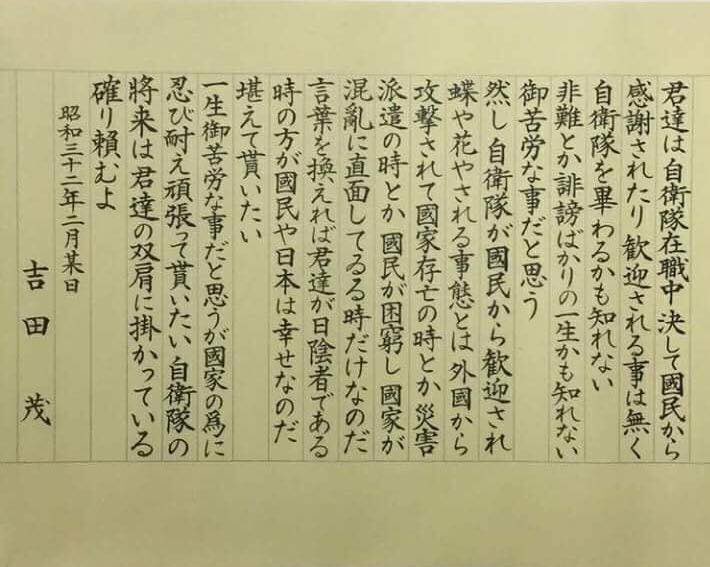 君達は自衛隊在職中決して國民から
感謝されたり歓迎される事は無く
自衛隊を畢わるかも知れない
非難とか誹謗ばかりの一生かも知れない
御苦労な事だと思う
然し自衛隊が國民から歓迎され
蝶や花やされる事態とは外國から
攻撃されて國家存亡の時とか災害
派遣の時とか國民が困窮し國家が
混亂に直面してゐる時だけなのだ
言葉を換えれば君達が日陰者である
時の方が國民や日本は幸せなのだ
堪えて貰いたい
一生御苦労な事だと思うが國家の為に
忍び耐え頑張って貰いたい自衛隊の
将来は君達の双肩に掛かっている
確り頼むよ
昭和三十二年二月某日
吉田茂